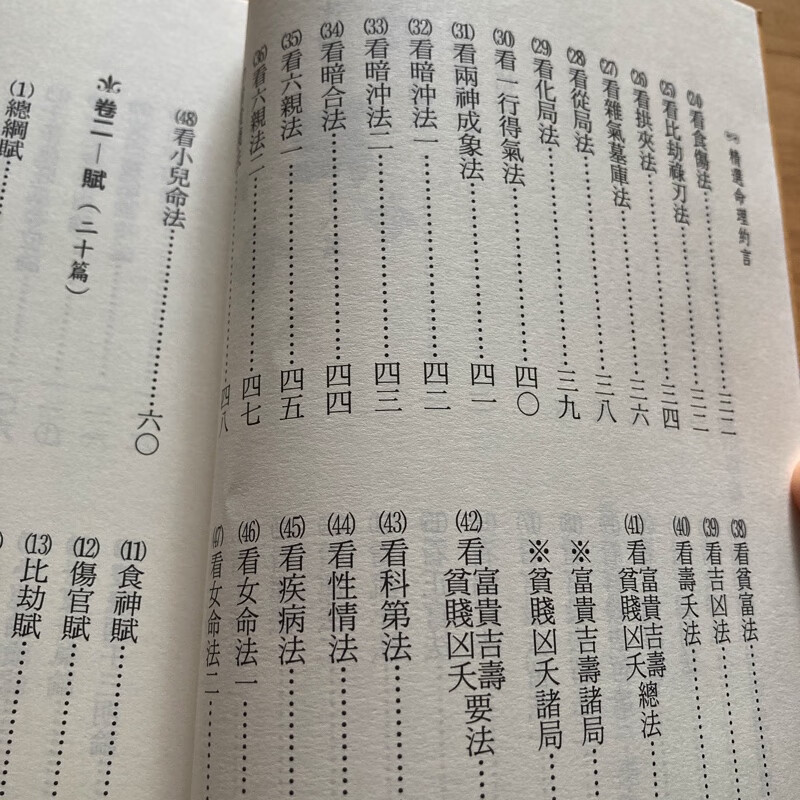 精選命理約言
(24)看食傷法……三二
(25)看比劫祿刃法……三二
(26)看拱夾法……三四
(27)看雜氣墓庫法……三六
(28)看從局法……三八
(29)看化局法……三九
(30)看一行得氣法……四〇
(31)看兩神成象法……四一
(32)看暗沖法一……四二
(33)看暗沖法二……四三
(34)看暗合法……四四
(35)看六親法一……四五
(36)看六親法二……四七
四八
(38)看貧富法……
(39)看吉凶法……
(40)看壽夭法……
(41)看富貴吉壽貧賤凶夭總法……
※富貴吉壽諸局……
※貧賤凶夭諸局……
(42)看富貴吉壽貧賤凶夭要法……
(43)看科第法……
(44)看性情法……
(45)看疾病法……
(46)看女命法一……
(47)看女命法二……
(48)看小兒命法……六〇
卷二—賦（二十篇）
(1)總綱賦
(11)食神賦……
(12)傷官賦……
(13)比劫賦……